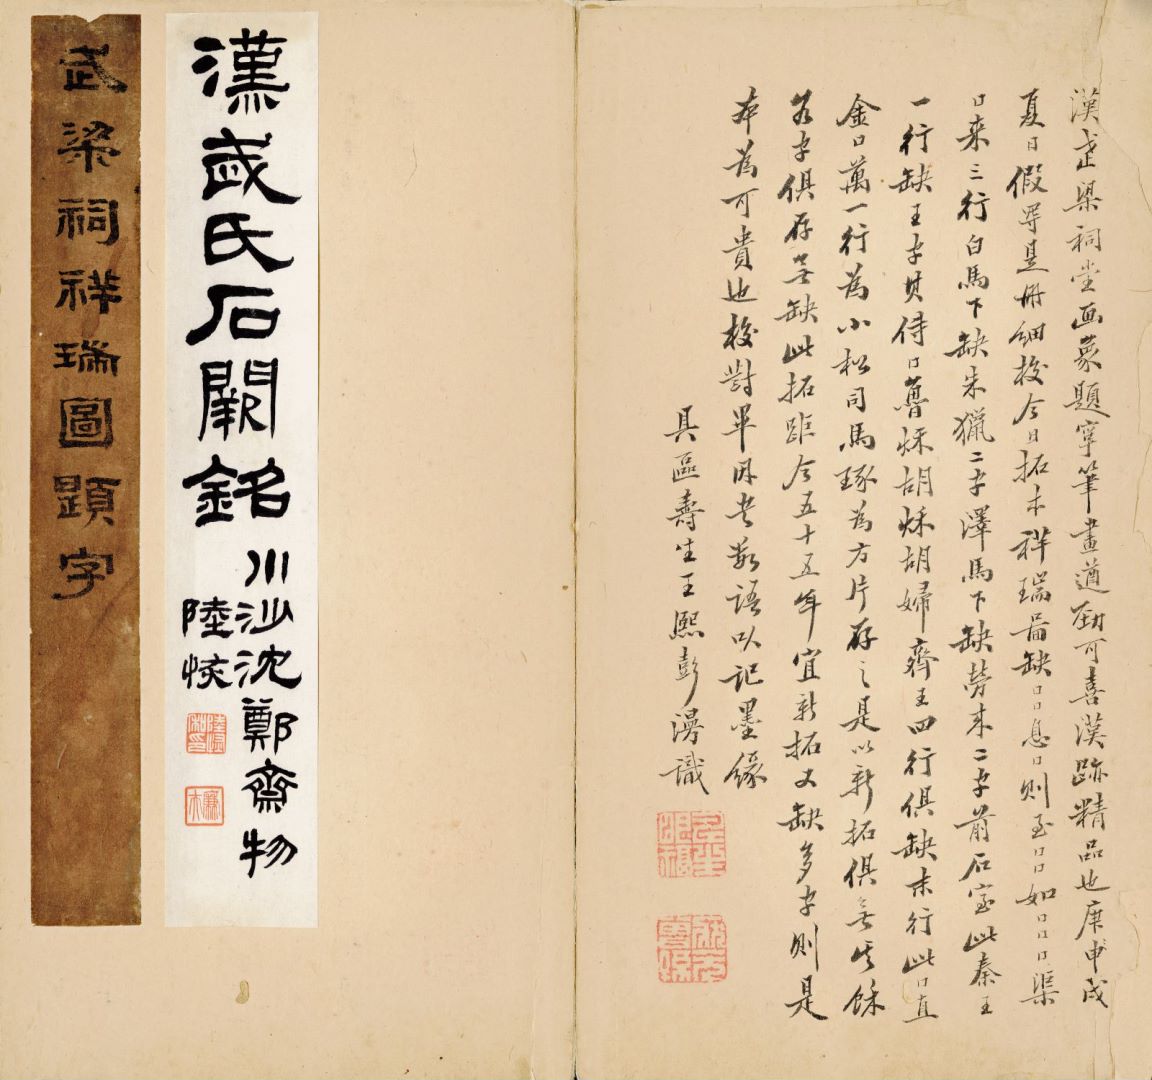 漢武梁祠堂画象題字筆畫遒勁可喜漢跡精品也庚申戌
夏日假得是册細校今日拓本祥瑞圖缺口口息口則至口口如口口口渠
口来三行白馬下缺朱獵二字澤馬下缺勞来二字前石室此秦王
一行缺王字其侍口魯秌胡秌胡婦齊王四行俱缺末行此口直
金口萬一行為小松司馬琢為方片存之是以新拓俱無此
字俱存無缺此拓距今五十五年宜新拓又缺多字則是
本為可貴也校對畢因書數語以記墨緣
具區壽生王熙彭漫識
漢武氏石闕銘
川沙沈鄭齋物
陸恢
武梁祠祥瑞圖題字